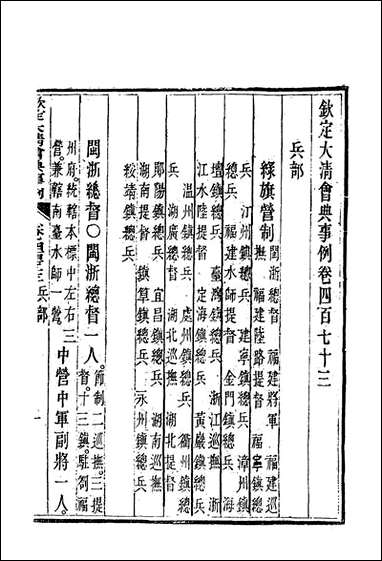 欽定大清會典事例卷四百七十三
兵部
綠旗營制 閩浙總督 福建將軍 福建巡
撫 福建陸路提督 福寧鎮總
兵 汀州鎮總兵 建寧鎮總兵 漳州鎮
總兵 福建水師提督 金門鎮總兵 海
壇鎮總兵 臺灣鎮總兵 浙江巡撫 浙
江水陸提督 定海鎮總兵 黃巖鎮總兵
溫州鎮總兵 處州鎮總兵 衢州鎮總
兵 湖廣總督 湖北巡撫 湖北提督
鄖陽鎮總兵 宜昌鎮總兵 湖南巡撫
湖南提督 鎮筸鎮總兵 永州鎮總兵
綏靖鎮總兵
閩浙總督○閩浙總督一人。節制二巡撫。三提督。十三鎮。駐劄福
州府。統轄本標中左右三營。兼轄南臺水師一營。中營中軍副將一人。
欽定大清會典事例 卷四百七十三 兵部 一